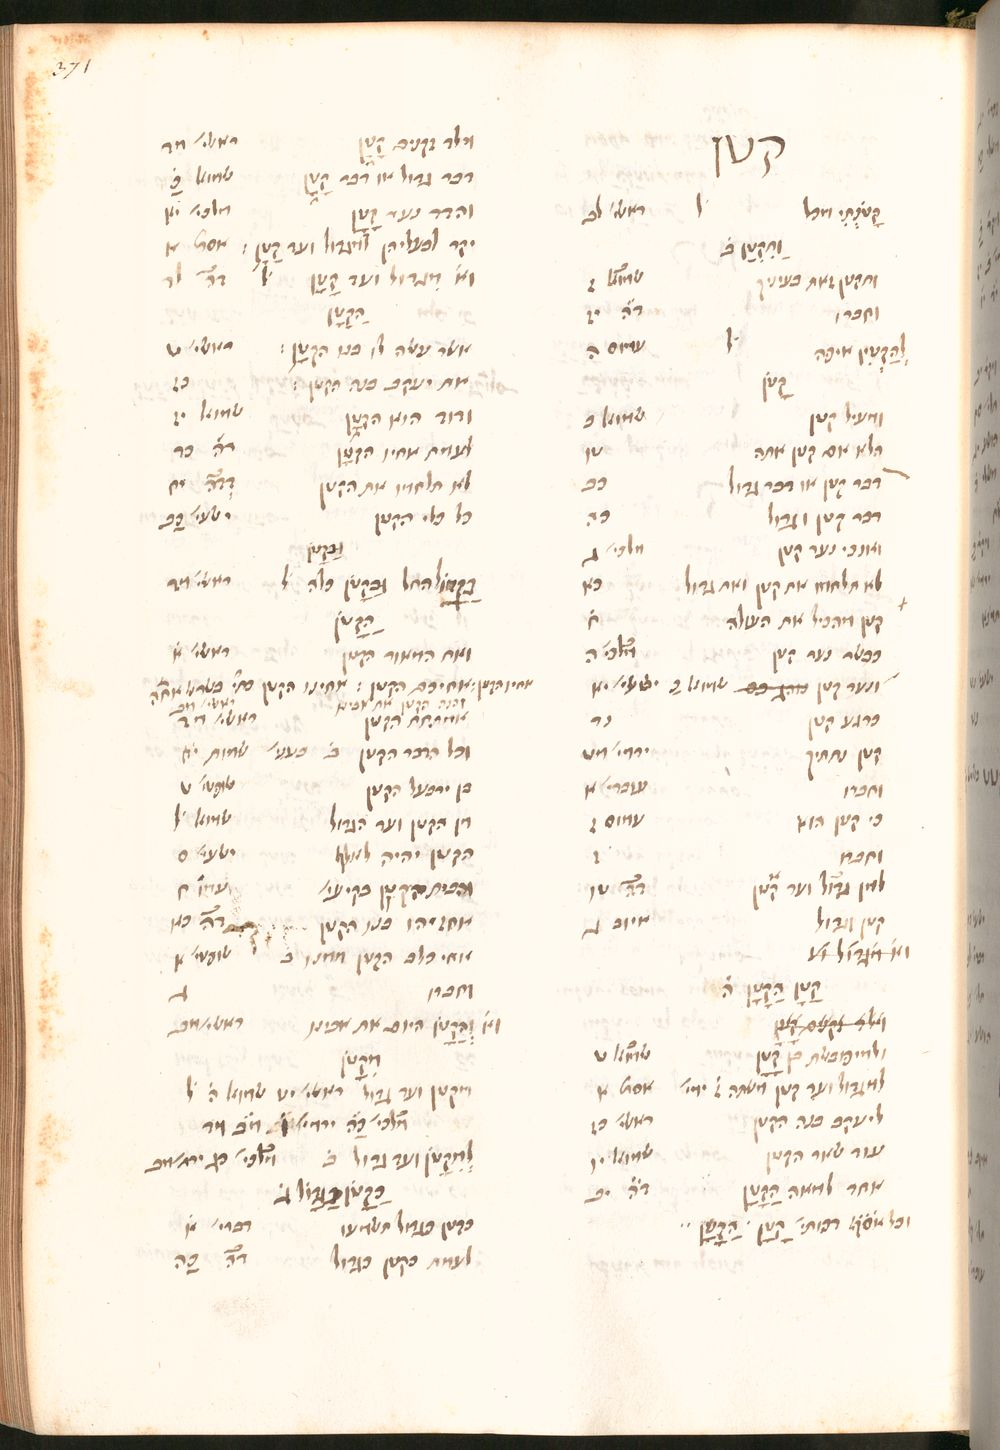 371
קטן
קָטֹנְתִּי מכל ל ראשי׳ לב
וַתִּקְטַן ב
ותקטן זאת בעיניך שמוא׳ ז
וחברו ד״ה יז
לְהַקְטִין איפה ל עמוס ה
קָטֹן
ומעיל קטן שמוא׳ ב
הלא אם קטן אתה טו
דבר קטן או דבר גדול כב
דבר קטן וגדול כה
ואנכי נער קטן מלכי׳ ג
לא תלחמו את קטן ואת גדול כא
קטן מהכיל את העולה ח
כבשר נער קטן מלכי׳ ה
ונער קטן שמוא׳ ב ישעי׳ יא
כרגע קטן נד
קטן נתתיך ירמי׳ מט
וחברו עובדי׳ א
כי קטן הוא עמוס ז
וחברו ז
למן גדול ועד קטן ד״ה טו
קטן וגדול איוב ג
קָטָן הַקָּטָן ה
ולמיפבשת בן קָטָן שמוא׳ ט
למגדול ועד קטן משתה אסת׳ א
ליעקב בנה הקטן ראשי׳ כז
עוד שאר הקטן שמוא׳ יו
אחד למאה הַקָּטָן ד״ה יב
קָטָן הַקָּטָן
וילד זקנים קָטָן ראשי׳ מד
דבר גדול או דבר קָטָן שמוא׳ כ
והדד נער קָטָן מלכי׳ יא
יקר לבעליהן למגדול ועד קָטָן : אסת׳ א
וא׳ מגדול ועד קָטָן ל׳ ד״ה לד
הַקָּטָן
אשר עשה לו בנו הקטן : ראשי׳ ט
את יעקב בנה הקטן : כז
ודוד הוא הקטן שמוא׳ יז
לעמת אחיו הקטן ד״ה כד
לא תלחמו את הקטן ד״ה יח
כל כלי הקטן ישעי׳ כב
וּבַקָּטֹן
החל ובקטן כלה ל ראשי׳ מד
הַקָּטֹן
ואת המאור הקטן ראשי׳ א
אחיכם הקטן : אחינו הקטן
והנה הקטן את אבינו ראשי׳ מב
אמתחת הקטן ראשי׳ מד
וכל הדבר הקטן ב שמות יח
בן ירבעל הקטן שופטי׳ ט
מן הקטן ועד הגדול שמוא׳ ל
הקטן יהיה לאלף ישעי׳ ס
והבית הקטן בקיעי׳ עמו׳
אחזיהו בנו הקטן ד״ה כא
אחי כלב הקטן ממנו ב שופטי׳ א
וחברו ג
וא׳ וְהַקָּטֹן היום את אבינו ראשי׳ מב
מִקָּטֹן
מקטן ועד גדול ראשי׳ יט שמוא׳ ה ל
לְמִקָּטֹן ועד גדול ב
כַּקָּטֹן כַּגָּדוֹל ג
כקטן כגדול תשמעו דברי׳ א
לעמת כקטן כגדול ד״ה כה